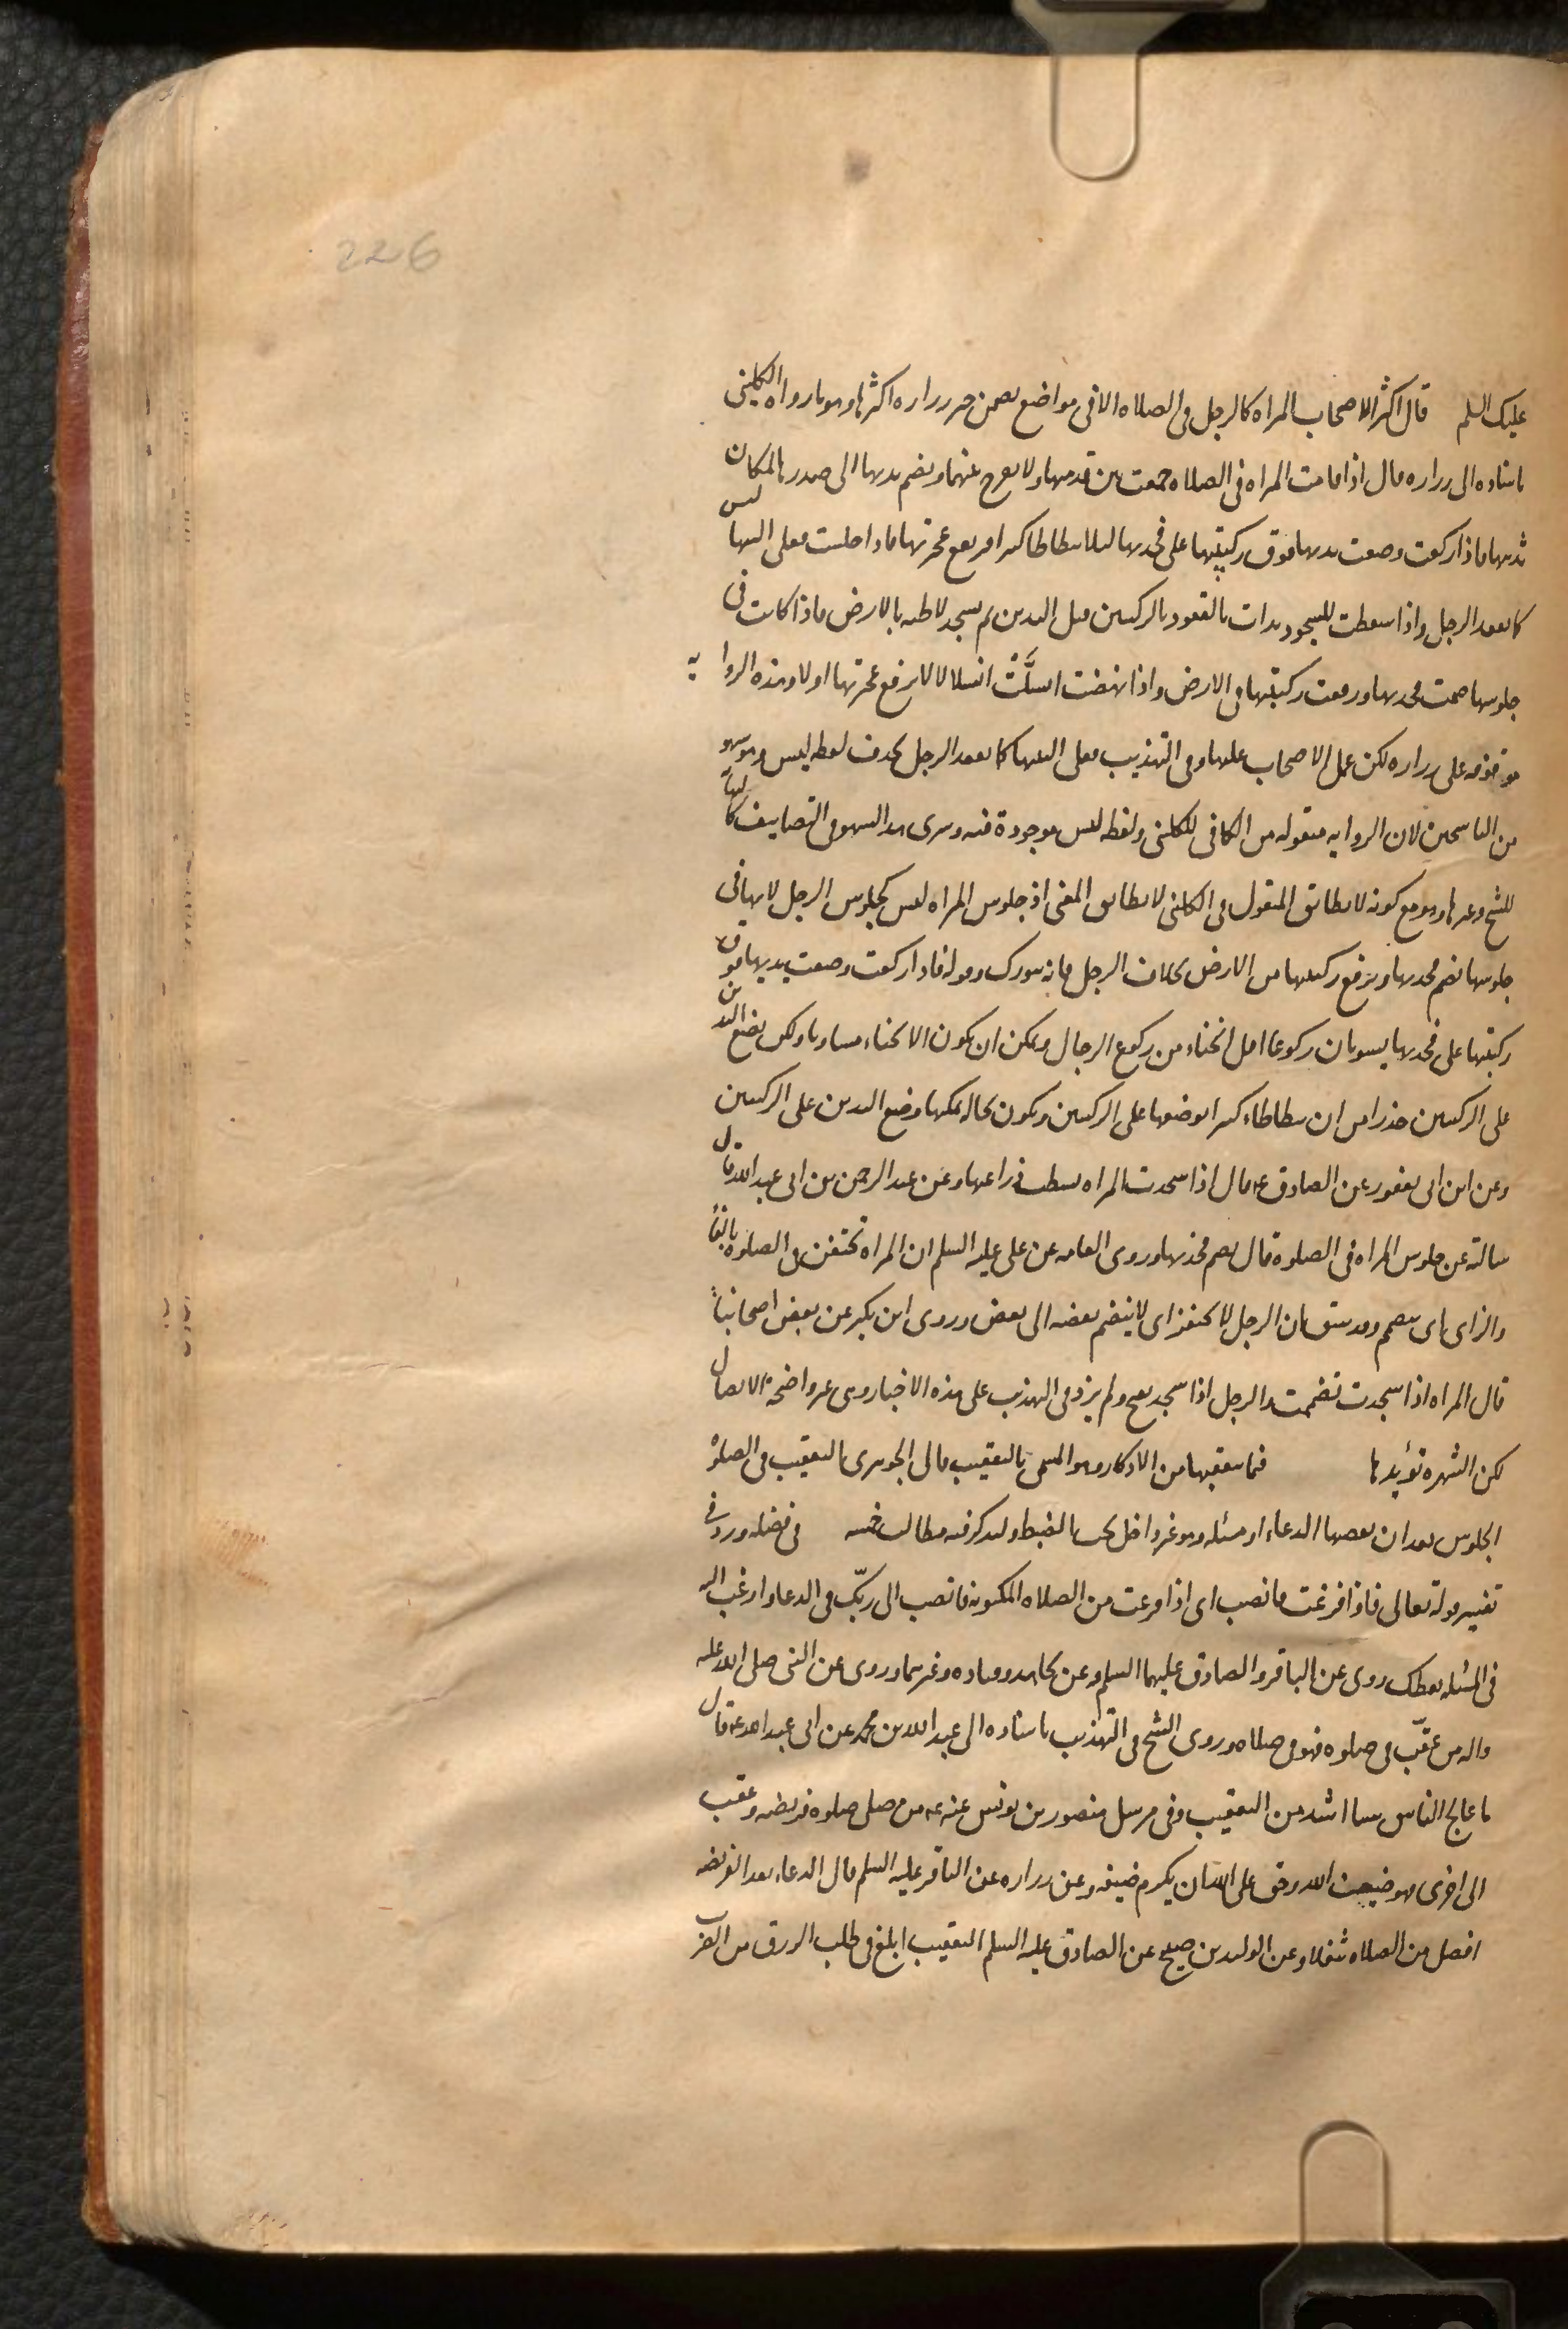 226
عليك السلم قال اكثر الاصحاب المراه كالرجل فى الصلاه الا فى مواضع تضمن خبر زراره اكثرها وهو ما رواه الكلينى
باسناده الى زراره قال اذا قامت المراه فى الصلاه جمعت بين قدميها ولا تفرج بينهما وتضم يديها الى صدرها لمكان
ثدييها فاذا ركعت وضعت يديها فوق ركبتيها على فخذيها ليلا تطاطا كثيرا فترتفع عجزتها فاذا جلست فعلى اليتيها ليس
كما يقعد الرجل واذا سقطت للسجود بدات بالقعود بالركبتين قبل اليدين ثم تسجد لاطئه بالارض فاذا كانت فى
جلوسها ضمت فخذيها ورفعت ركبتيها من الارض واذا نهضت انسلَّت انسلالا لا ترفع عجزتها اولا وهذه الروايه
موقوفه على زراره لكن عمل الاصحاب عليها وفى التهذيب فعلى اليتيها كما يقعد الرجل بحذف لفظه ليس وهو سهو
من الناسخين لان الروايه منقوله من الكافى للكلينى ولفظه ليس موجودة فيه وسرى هذا السهو فى التصانيف كالنهايه
للشيخ وغيرها وهو مع كونه لا يطابق المنقول فى الكلينى لا يطابق المعنى اذ جلوس المراه ليس كجلوس الرجل لانها فى
جلوسها تضم فخذيها وترفع ركبتيها من الارض بخلاف الرجل فانه يتورك وقوله فاذا ركعت وضعت يديها فوق
ركبتيها على فخذيها يشعر بان ركوعها اقل انحناء من ركوع الرجال ويمكن ان يكون الانحناء مساويا ولكن تضع اليدين
على الركبتين حذرا من ان تطاطاء كثيرا بوضعها على الركبتين وتكون بحاله يمكنها وضع اليدين على الركبتين
وعن ابن ابى يعفور عن الصادق ع قال اذا سجدت المراه بسطت ذراعيها وعن عبد الرحمن بن ابى عبد الله قال
سالته عن جلوس المراه فى الصلوة قال تضم فخذيها وروى العامه عن على عليه السلم ان المراه تحتفز فى الصلوة بالفاء
والزاى اى تتضم وقد سبق بان الرجل لا يحتفز اى لا ينضم بعضه الى بعض وروى ابن بكير عن بعض اصحابنا
قال المراه اذا سجدت تضممت والرجل اذا سجد تفتح ولم يزد فى التهذيب على هذه الاخبار وهى غير واضحة الاتصال
لكن الشهرة تؤيدها فيما يتعقبها من الاذكار وهو المسمى بالتعقيب قال الجوهرى التعقيب فى الصلوة
الجلوس بعد ان يقضيها الدعاء او مسئله وهو غير داخل تحت الضبط ولنذكر فيه مطالب خمسه فى فضله ورد فى
تفسير قوله تعالى فاذا فرغت فانصب اى اذا فرغت من الصلاه المكتوبه فانصب الى ربّك فى الدعاء وارغب اليه
فى المسئله يعطك روى عن الباقر والصادق عليهما السلم وعن مجاهد وقتاده وغيرهما وروى عن النبى صلى الله عليه
واله من عقّب فى صلوه فهو فى صلاه وروى الشيخ فى التهذيب باسناده الى عبد الله بن محمد عن ابى عبد الله ع قال
ما عالج الناس شيئا اشد من التعقيب وفى مرسل منصور بن يونس عنه ع من صلى صلوه فريضه وعقب
الى اخرى فهو ضيف الله وحق على الله ان يكرم ضيفه وعن زراره عن الباقر عليه السلم قال الدعاء بعد الفريضه
افضل من الصلاه تنفلا وعن الوليد بن صبيح عن الصادق عليه السلم التعقيب ابلغ فى طلب الرزق من الضرب